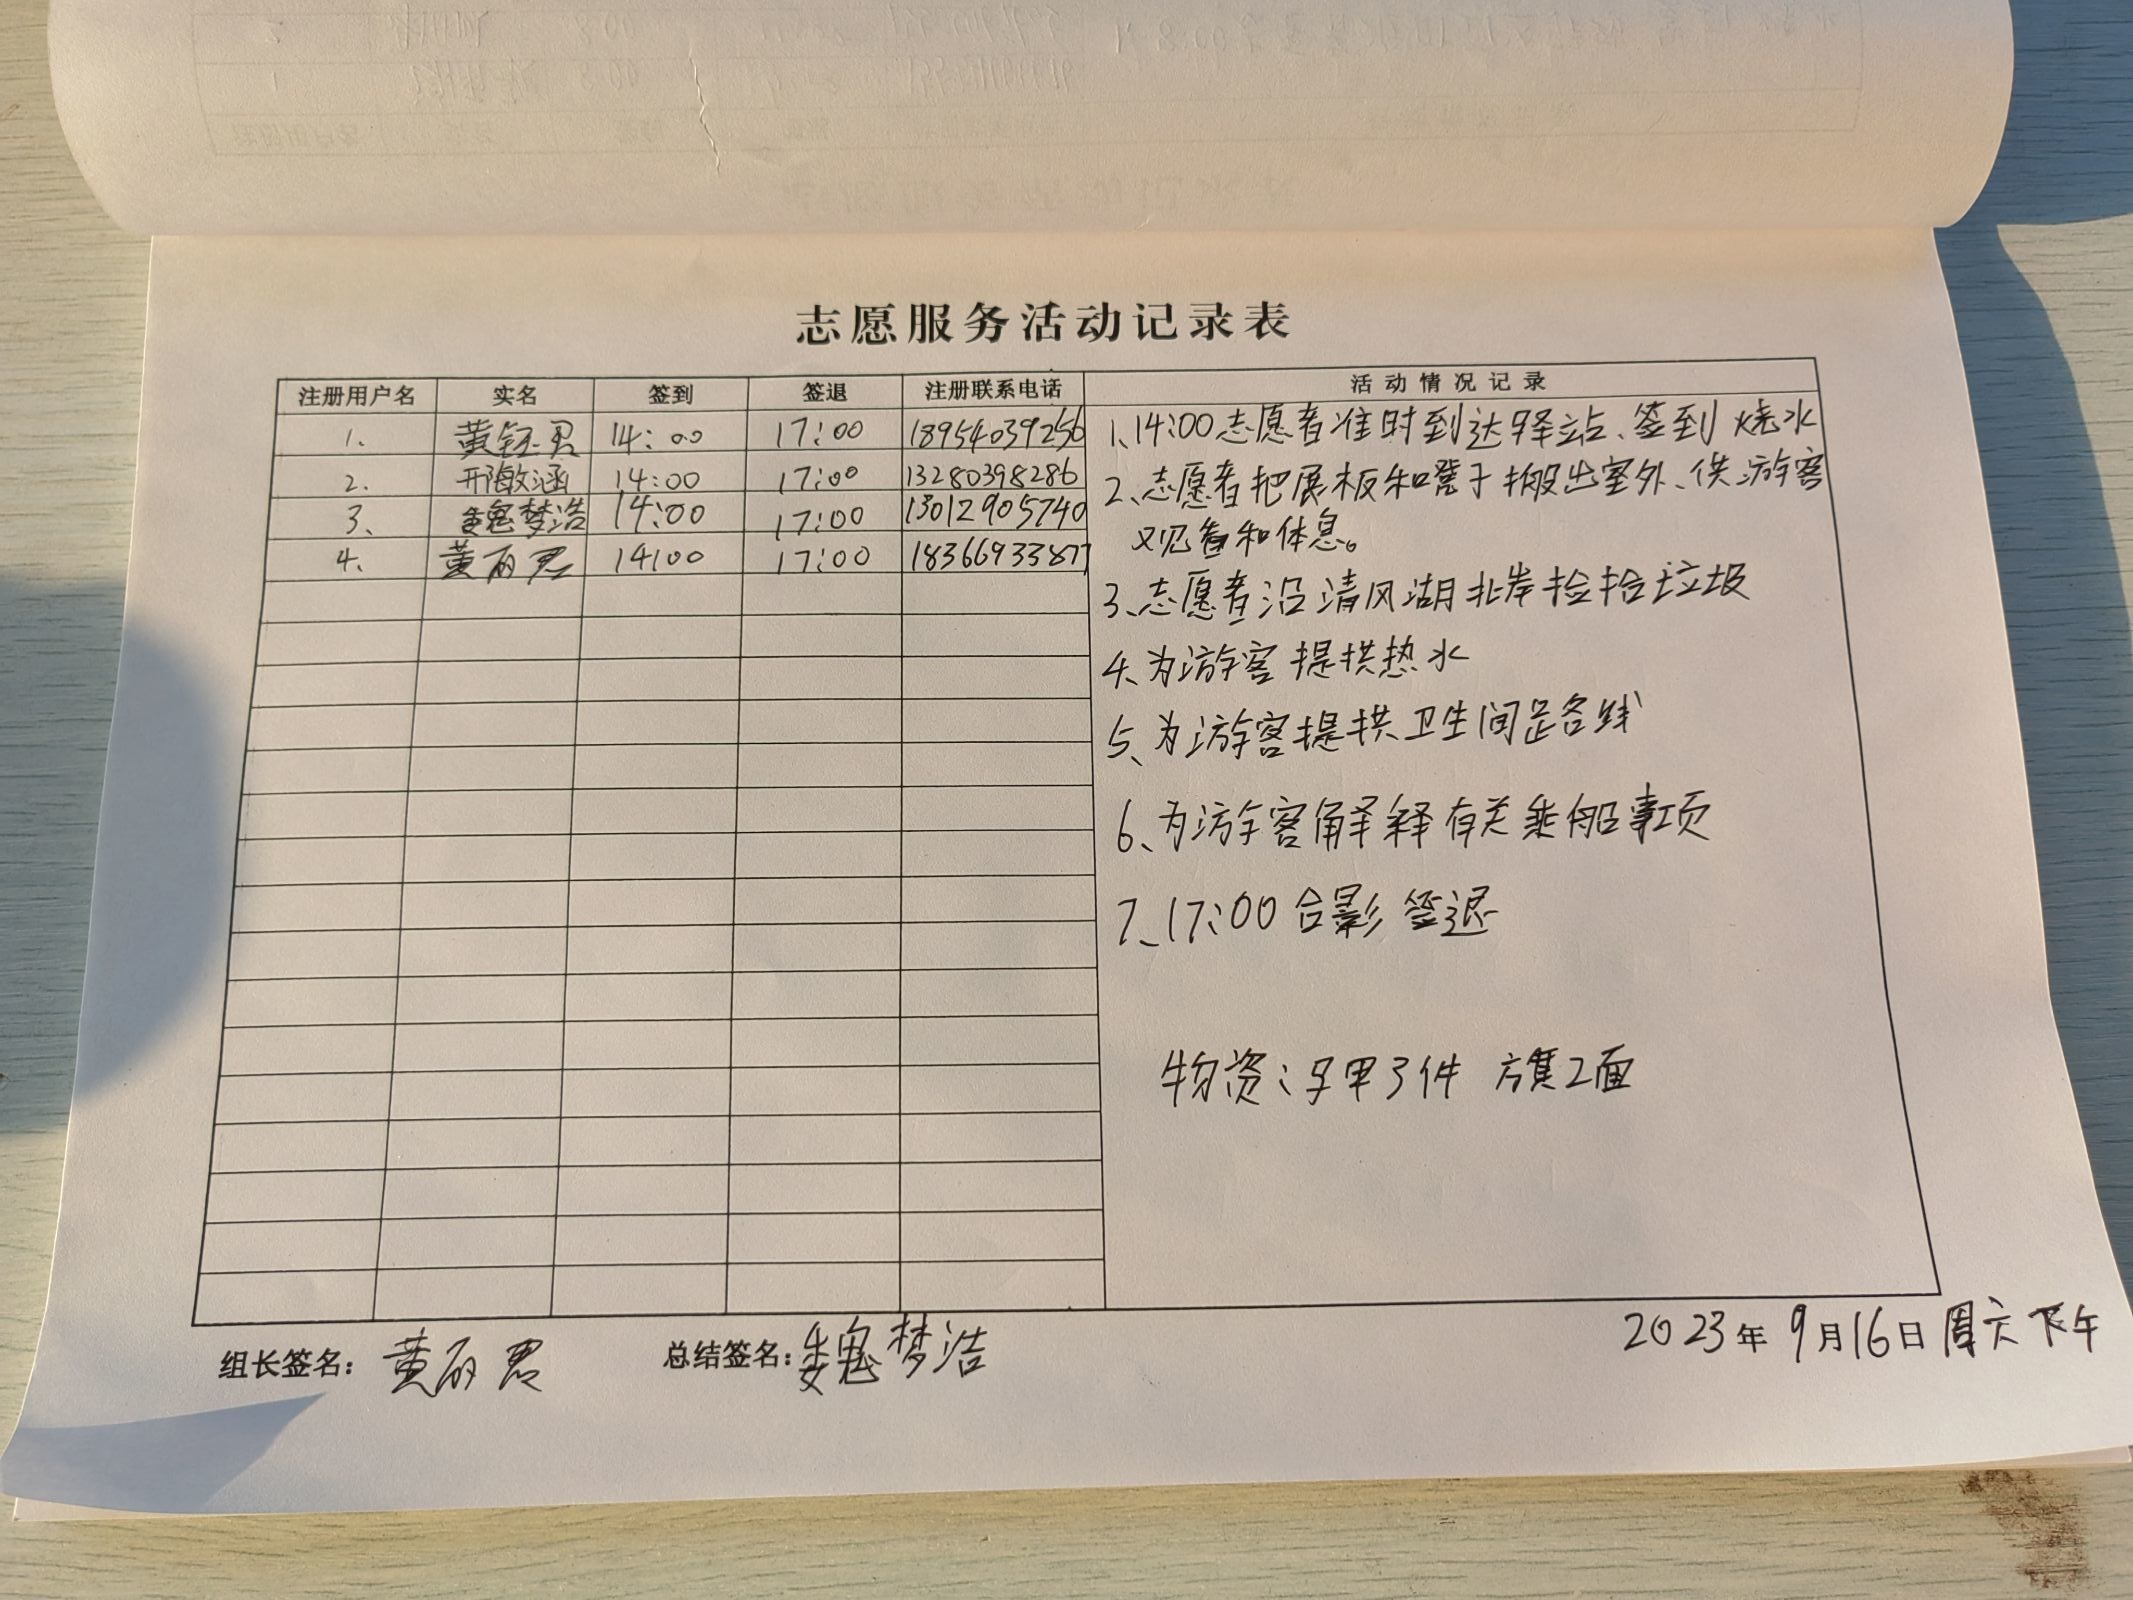 志愿服务活动记录表
注册用户名 实名 签到 签退 注册联系电话 活动情况记录
1. 黄钰君 14:00 17:00 18954039256
2. 邢敏涵 14:00 17:00 13280398286
3、 魏梦浩 14:00 17:00 13012905740
4、 黄丽君 14:00 17:00 18366933877
1、14:00志愿者准时到达驿站、签到 烧水
2、志愿者把展板和凳子搬出室外、供游客
观看和休息。
3、志愿者沿清风湖北岸捡拾垃圾
4、为游客提供热水
5、为游客提供卫生间路线
6、为游客解释有关乘船事项
7、17:00 合影 签退
物资:马甲3件 旗2面
组长签名: 黄丽君 总结签名: 魏梦浩
2023年9月16日 周六下午